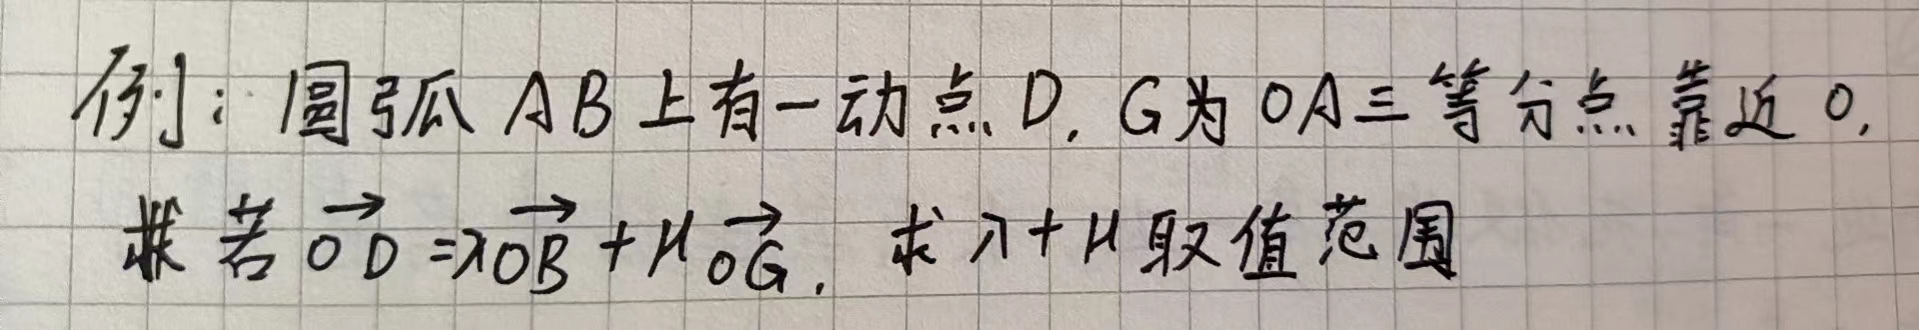 例：圆弧 AB 上有一动点 D. G为 OA三等分点靠近 O,
若 \overrightarrow{OD} = λ\overrightarrow{OB} + μ\overrightarrow{OG}. 求 λ+μ 取值范围